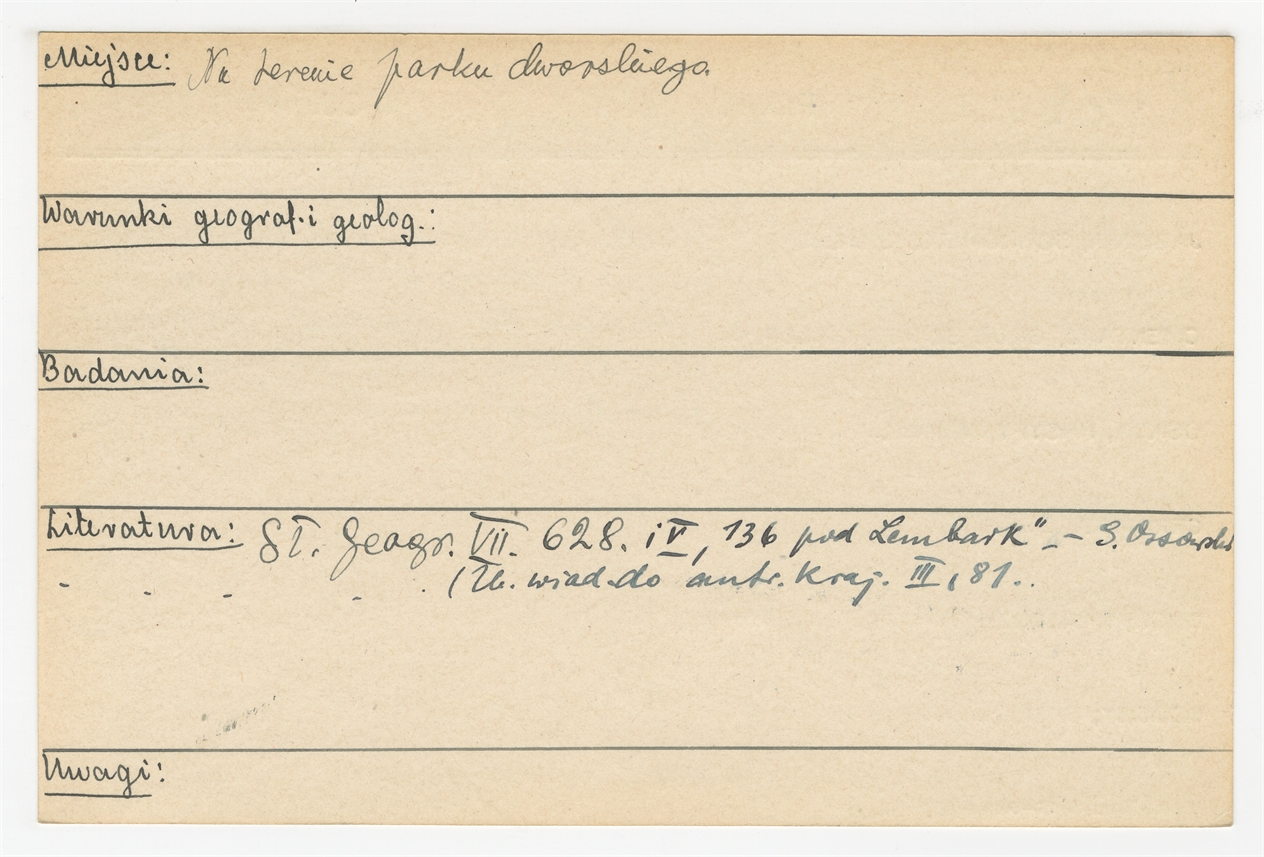 Miejsce: Na terenie parku dworskiego.
Warunki geograf. i geolog.:
Badania:
Literatura: Sł. Geogr. VII. 628. i V, 136 pod Lembark" - G. Ossowski
(Zb. wiad. do antr. Kraj. III, 81..
Uwagi: